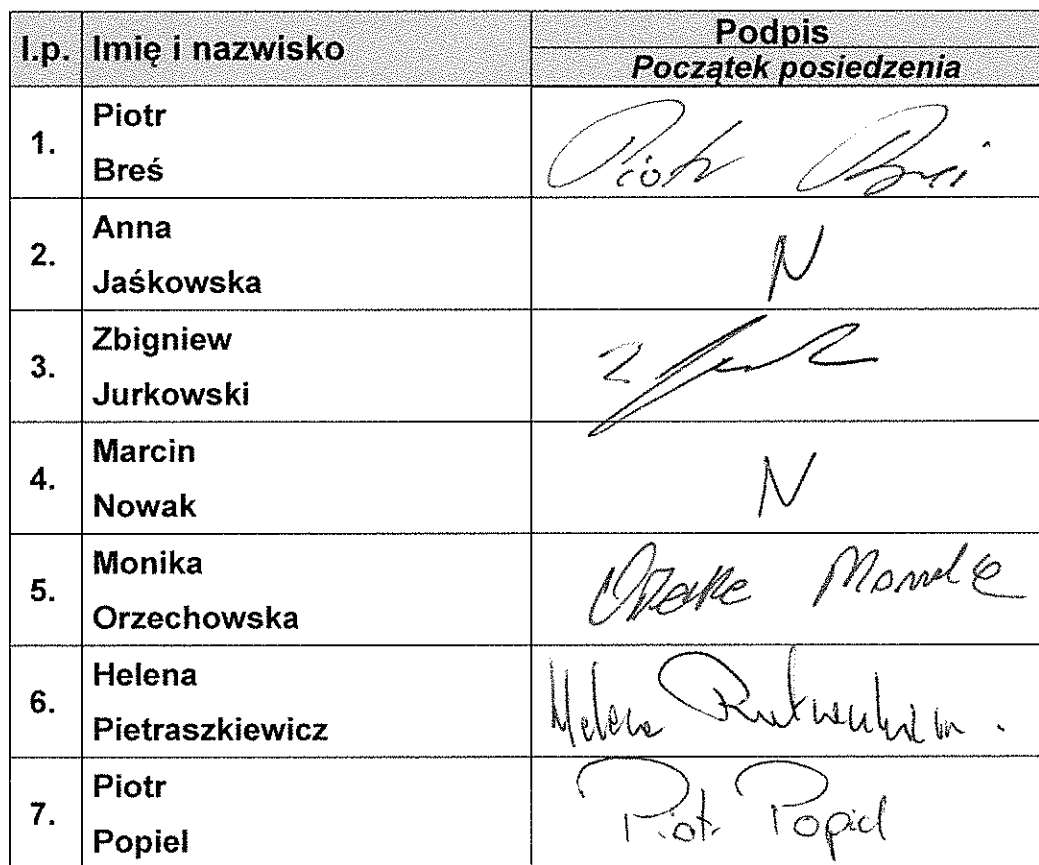 l.p. Imię i nazwisko Podpis
Początek posiedzenia
1. Piotr
Breś
Piotr Breś
2. Anna
Jaśkowska
N
3. Zbigniew
Jurkowski
4. Marcin
Nowak
N
5. Monika
Orzechowska
6. Helena
Pietraszkiewicz
Helena
7. Piotr
Popiel
Piotr Popiel